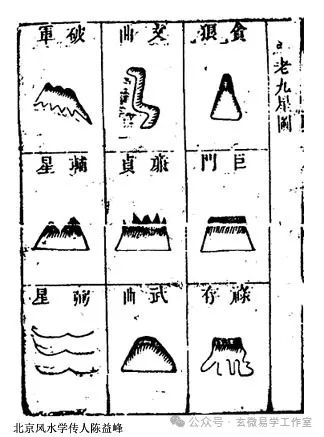 老九星圖
貪狼
文曲
破軍
巨門
廉貞
輔星
祿存
武曲
弼星
北京风水学传人陈益峰
公众号 · 玄微易学工作室